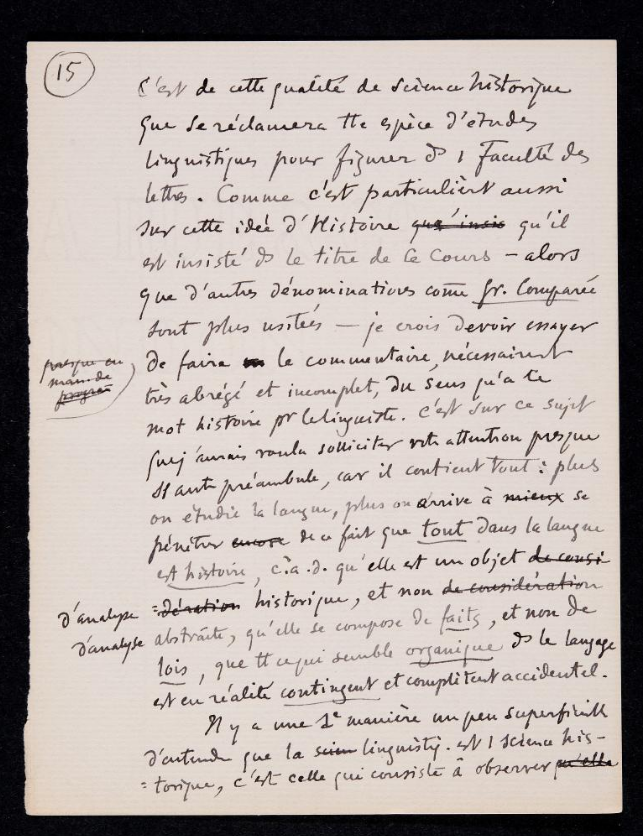 15
C'est de cette qualité de science historique
que se réclamera tte espèce d'études
linguistiques pour figurer ds 1 Faculté des
lettres. Comme c'est particulièrt aussi
sur cette idée d'Histoire qu'il
est insisté ds le titre de ce Cours – alors
que d'autres dénominations come Gr. Comparée
sont plus usitées – je crois devoir essayer
presque en
main de
progrès
de faire le commentaire, nécessairemt
très abrégé et incomplet, du sens qu'a le
mot histoire pr le linguiste. C'est sur ce sujet
que j'aurais voulu solliciter votre attention presque
ss autre préambule, car il contient tout : plus
on étudie la langue, plus on arrive à mieux se
pénétrer encore de ce fait que tout dans la langue
est histoire, c.à.d. qu'elle est un objet de consi
d'analyse =dération historique, et non de considération
d'analyse abstraite, qu'elle se compose de faits, et non de
lois, que tt ce qui semble organique ds le langage
est en réalité contingent et complètemt accidentel.
Il y a une 1e manière un peu superficielle
d'entendre que la scien linguistiq. est 1 science his-
=torique, c'est celle qui consiste à observer qu'elle